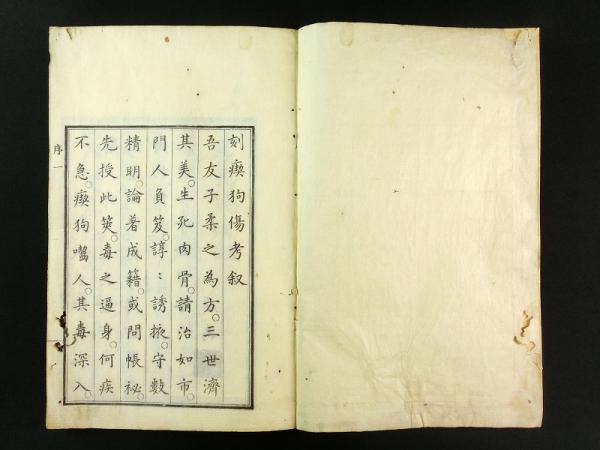 刻瘈狗傷考叙
吾友子柔之為方。三世濟
其美。生死肉骨。請治如市。
門人負笈。諄〻誘掖。守數
精明。論著成籍。或問帳祕。
先授此筴。毒之逼身。何疾
不急。瘈狗囓人。其毒深入。
序一